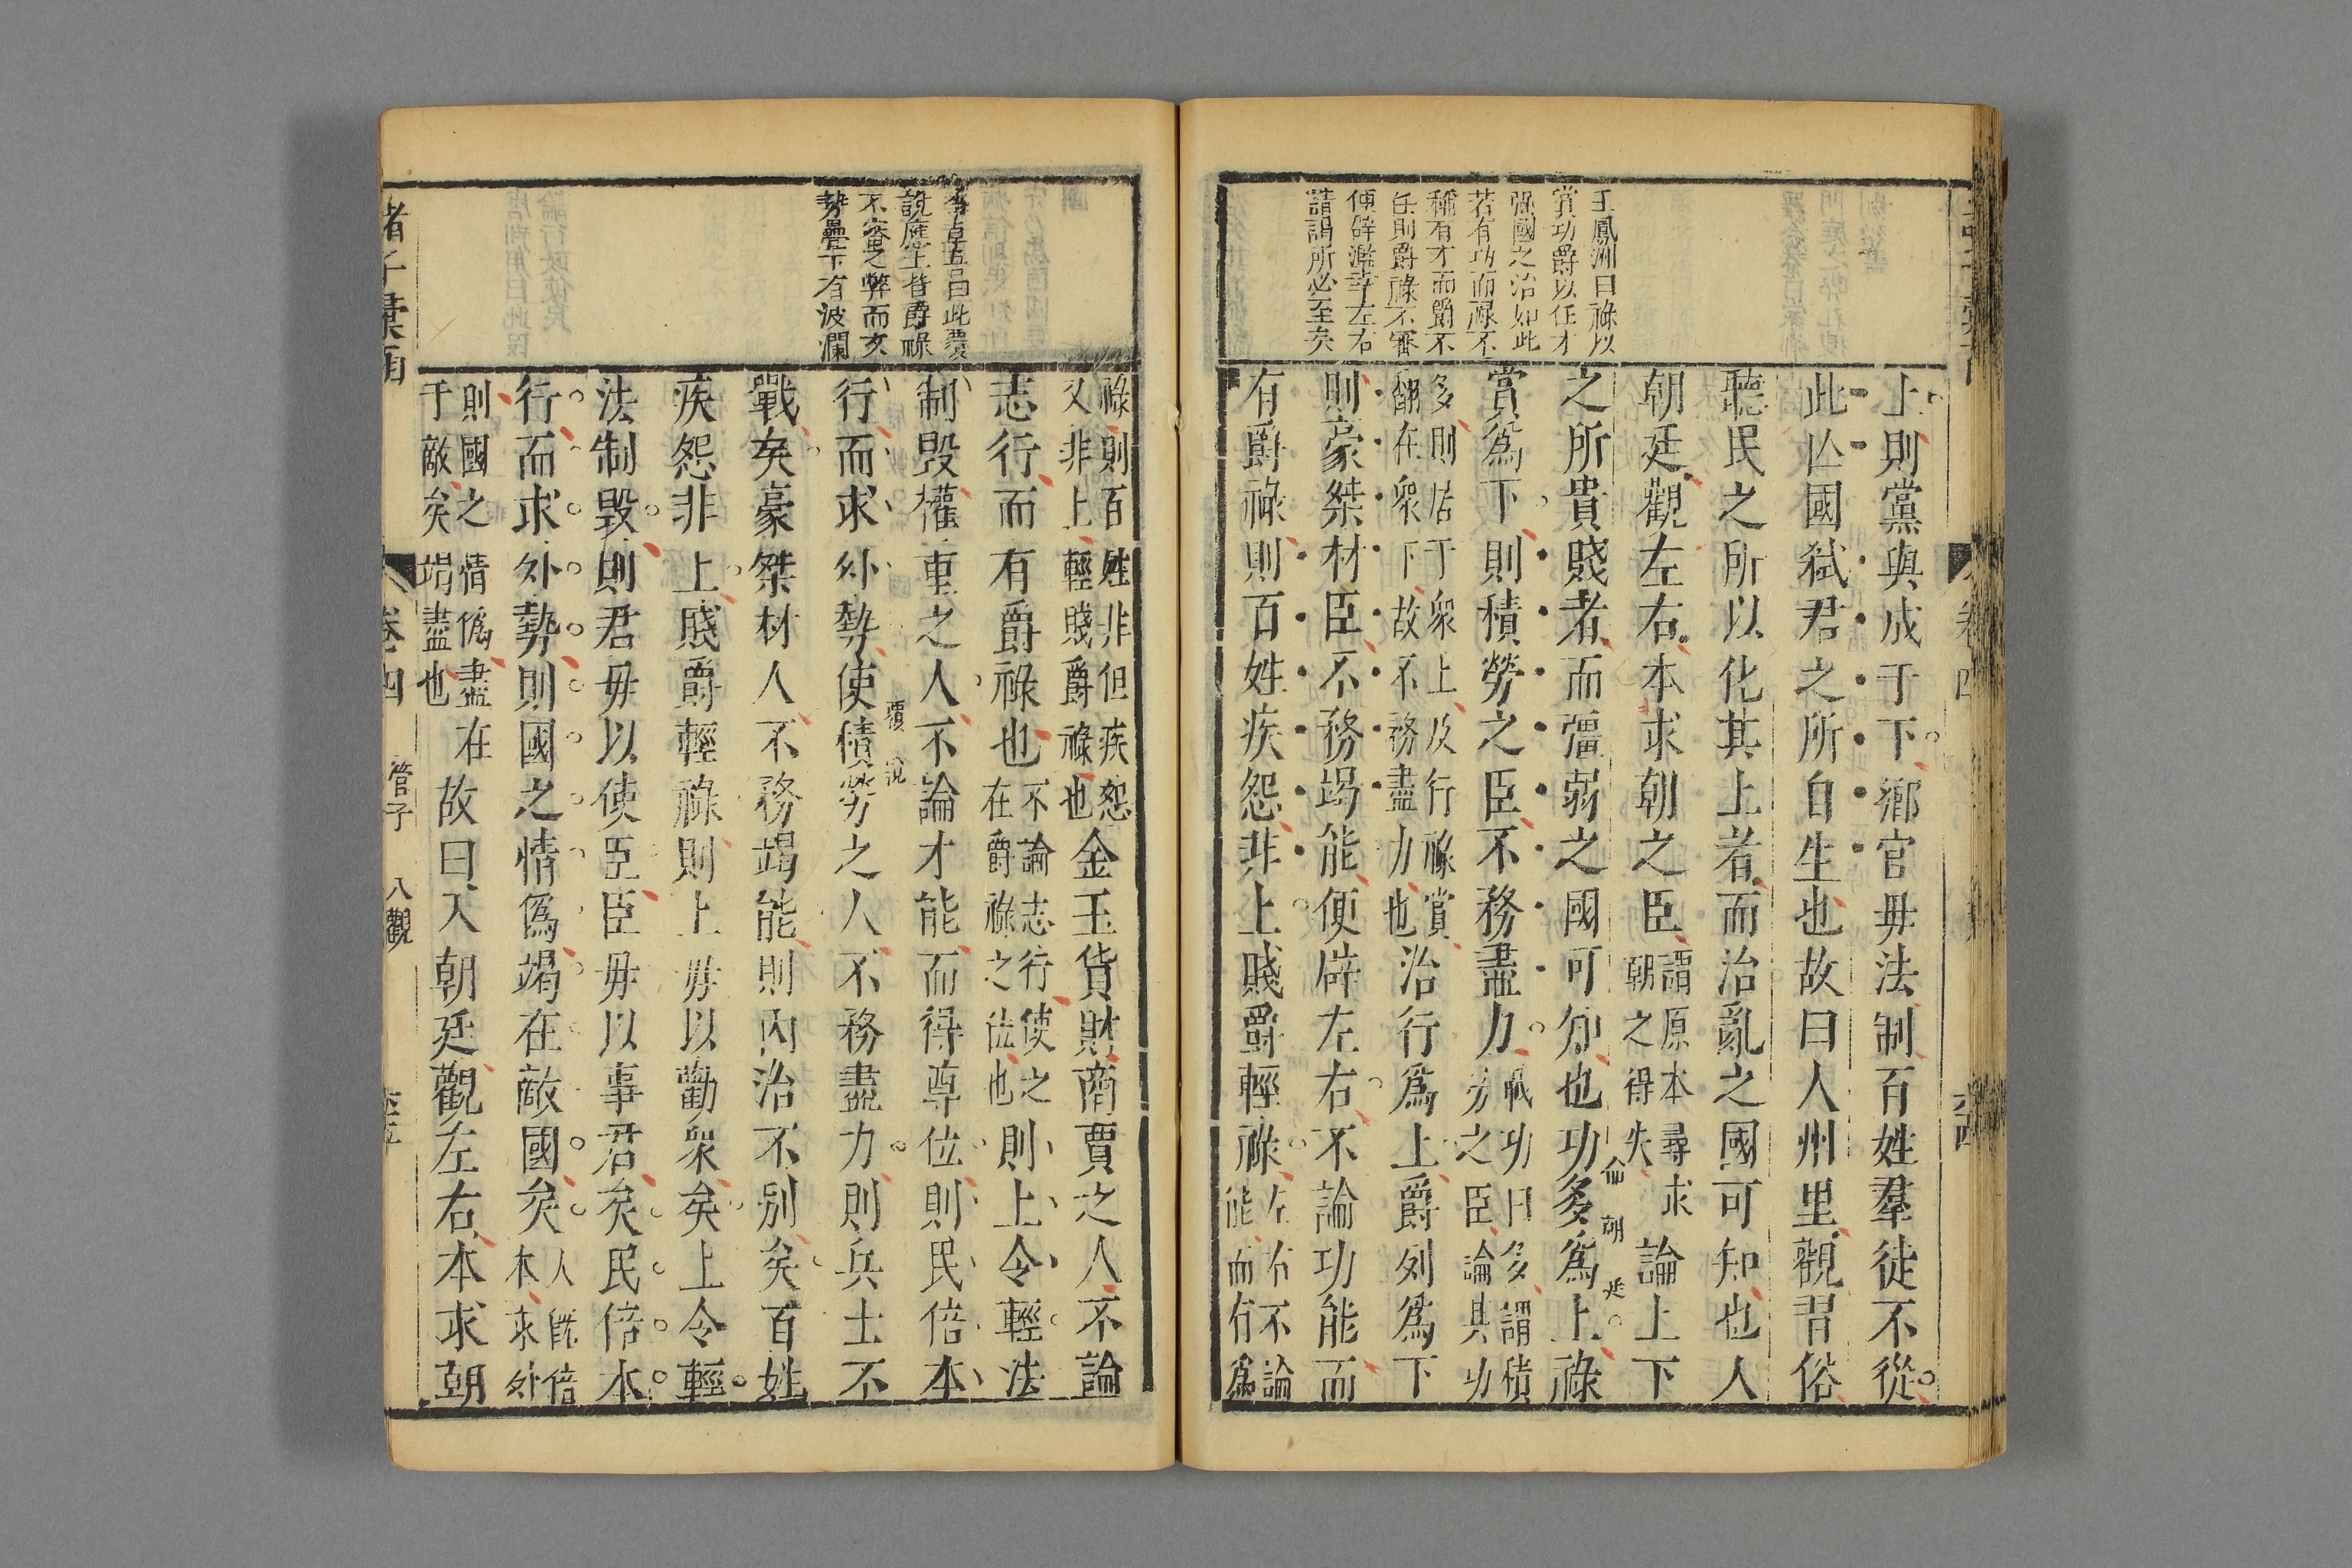 王鳳洲曰祿以
賞功爵以任才
強國之治如此
若有功而祿不
稱有才而爵不
任則爵祿不審
便辟濫幸左右
請謁所必至矣
上則黨與成于下鄉官毋法制百姓羣徒不從
此亾國弑君之所自生也故曰入州里觀習俗
聽民之所以化其上者而治亂之國可知也人
朝廷觀左右本求朝之臣謂原本尋求朝之得失論上下
之所貴賤者而彊弱之國可知也功多爲上祿
論朝廷
賞爲下則積勞之臣不務盡力戰功曰多謂積勞之臣論其功
多則居于衆上及行祿賞翻在衆下故不務盡力也治行爲上爵列爲下
則豪桀材臣不務竭能便辟左右不論功能而
有爵祿則百姓疾怨非上賤爵輕祿左右不論能而有爲
卷四
說庭上皆爵祿
不審之弊而文
勢疊下有波瀾
祿則百姓非但疾怨又非上輕賤爵祿也金玉貨財商賈之人不論
志行而有爵祿也不論志行使之在爵祿之法也則上令輕法
制毀權重之人不論才能而得尊位則民倍本
行而求外勢使積勞之人不務盡力則兵士不
覆說
戰矣豪桀材人不務竭能則內治不別矣百姓
疾怨非上賤爵輕祿則上毋以勸衆矣上令輕
法制毀則君毋以使臣臣毋以事君矣民倍本
行而求外勢則國之情僞竭在敵國矣人旣倍本求外
則國之情僞盡在于敵矣竭盡也故曰入朝廷觀左右本求朝
諸子彙函
卷四
管子
八觀